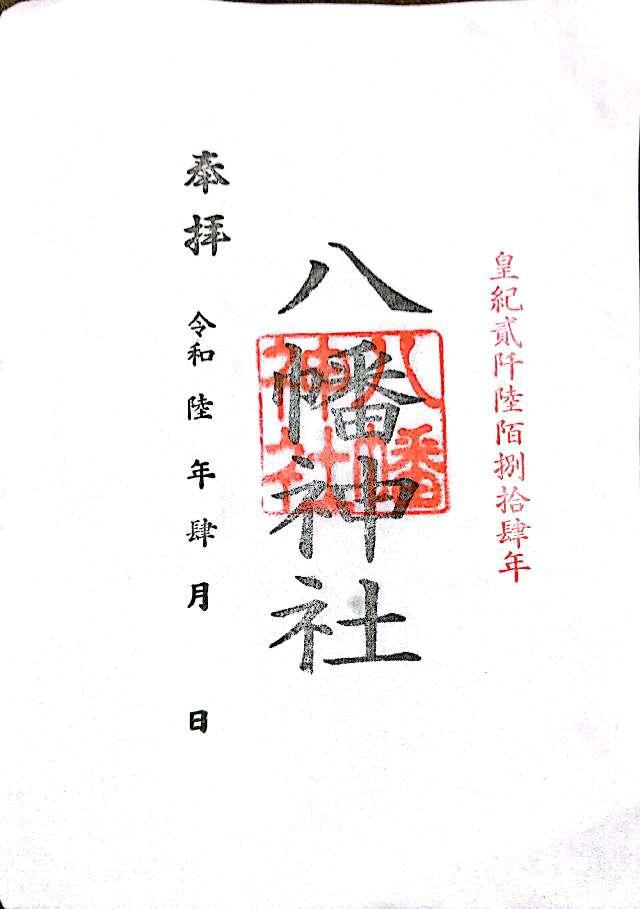 皇紀貳阡陸陌捌拾肆年
八幡神社
八幡
神社
奉拝 令和陸年肆月 日